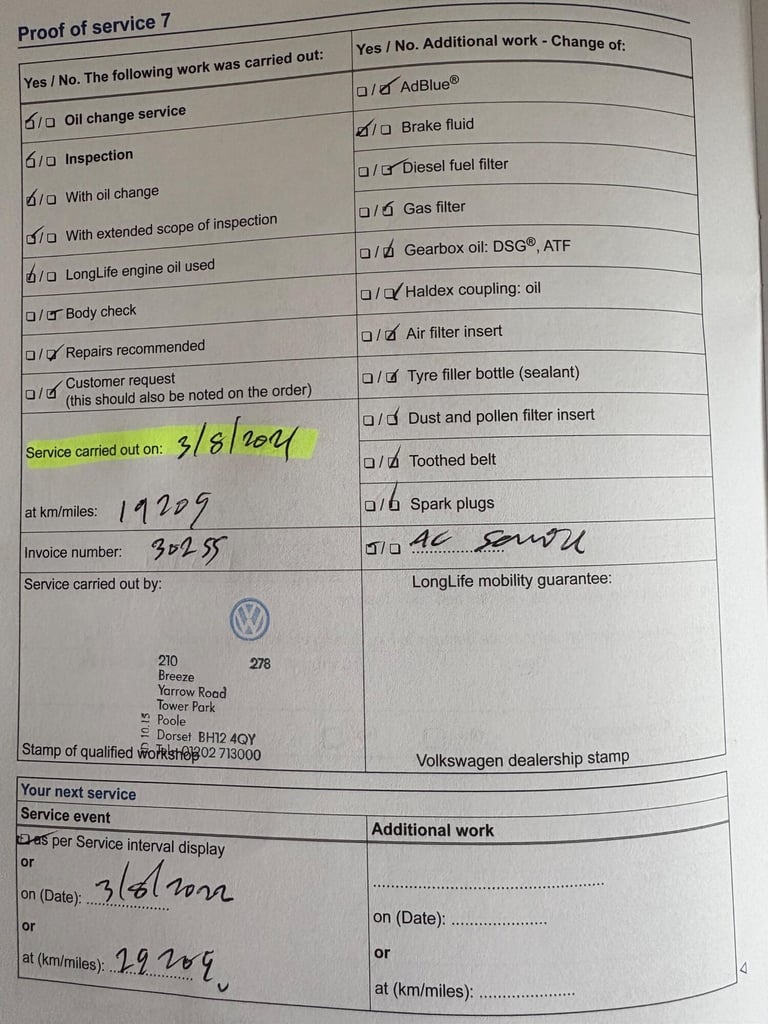 Proof of service 7
Yes / No. The following work was carried out:
Oil change service
Inspection
With oil change
With extended scope of inspection
LongLife engine oil used
Body check
Repairs recommended
Customer request
(this should also be noted on the order)
Service carried out on: 3/8/2021
at km/miles: 19209
Invoice number: 30255
Yes / No. Additional work - Change of:
AdBlue®
Brake fluid
Diesel fuel filter
Gas filter
Gearbox oil: DSG®, ATF
Haldex coupling: oil
Air filter insert
Tyre filler bottle (sealant)
Dust and pollen filter insert
Toothed belt
Spark plugs
AC Service
Service carried out by:
210 278
Breeze
Yarrow Road
Tower Park
Poole
Dorset BH12 4QY
Tel: 01202 713000
Stamp of qualified workshop
LongLife mobility guarantee:
Volkswagen dealership stamp
Your next service
Service event
as per Service interval display
or
on (Date): 3/8/2022
or
at (km/miles): 29209
Additional work
on (Date):
or
at (km/miles):